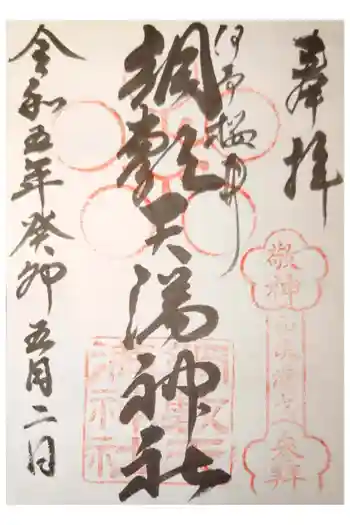 奉拝
伊予桜井
綱敷天満神社
令和五年癸卯五月二日
敬神
参拝